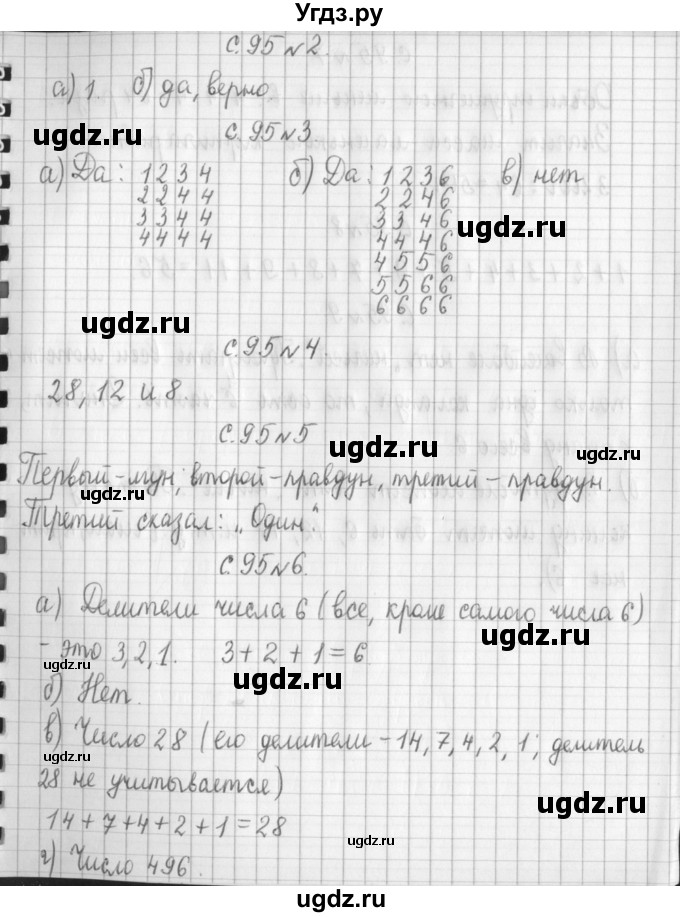 Угдз.ру
с.95 №2.
а) 1. б) да, верно
ugdz.ru
с.95 №3.
а) Да: 1 2 3 4
2 2 4 4
3 3 4 4
4 4 4 4
б) Да: 1 2 3 6
2 2 4 6
3 3 4 6
4 4 4 6
4 5 5 6
5 5 6 6
6 6 6 6
в) нет
ugdz.ru
ugdz.ru
с.95 №4.
28, 12 и 8.
с.95 №5
ugdz.ru
ugdz.ru
Первый - лгун, второй - правдун, третий - правдун.
ugdz.ru
Третий сказал: „Один“.
с.95 №6.
а) Делители числа 6 (все, кроме самого числа 6)
ugdz.ru
- это 3, 2, 1. 3 + 2 + 1 = 6
ugdz.ru
ugdz.ru
б) Нет.
в) Число 28 (его делители - 14, 7, 4, 2, 1; делитель
28 не учитывается)
ugdz.ru
14 + 7 + 4 + 2 + 1 = 28
ugdz.ru
г) Число 496.
ugdz.ru